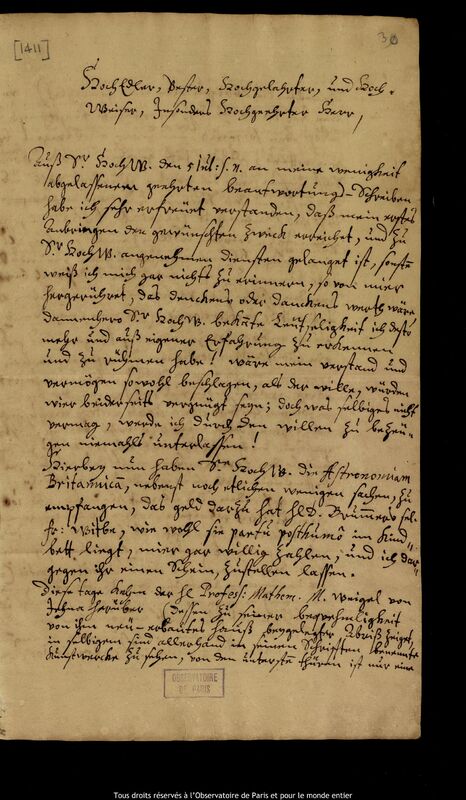 [1411]
30
HochEdler, Vester, Hochgelahrter, und Hoch-
Weiser, Insonders Hochgeehrter Herr,
Auß Sr. HochW. den 5 Jul: s. n. an meine wenigkeit
abgelassenem geehrten beantwortung-Schreiben
habe ich sehr erfreuet verstanden, daß mein erstes
Anbringen den gewünschten zweck erreichet, und zu
Sr. HochW. angenehmen diensten gelanget ist, sonste
weiß ich mich gar nichts zu erinnern, so von mier
hergerühret, das denckens oder danckens werth wäre
dannenhero Sr. HochW. bekäte Leutseligkeit ich desto
mehr und auß eigener Erfahrung zu erkennen
und zu rühmen habe! wäre mein verstand und
vermögen sowohl beschlagen, als der wille, würden
wier beiderseits vergnügt seyn; doch was selbiges nicht
vermag, werde ich durch den willen zu bezeu-
gen niemahls unterlassen!
Hierbey nun haben Sr. HochW. die Astronomiam
Britannicā, nebenst noch etlichen wenigen sachen, zu
empfangen, das geld darzu hat Hl. D. Brummers sel.
Fr: Witbe, wie wohl sie partu posthumô im Kind-
bett liegt, mier gar willig zahlen, und ich dar-
gegen ihr einen Schein, zustellen lassen.
Diese tage kahm der Hl Profess: Mathem. M. Weigel von
Jehna herüber (dessen zu seiner bequehmligkeit
von ihm neu-erbautes Hauß beygelegter Abriß zeiget,
in selbigem sind allerhand in seinen Schrifften benennte
Kunstwercke zu sehen, von den unterste thüren ist nur eine
OBSERVATOIRE
DE PARIS
Tous droits réservés à l'Observatoire de Paris et pour le monde entier